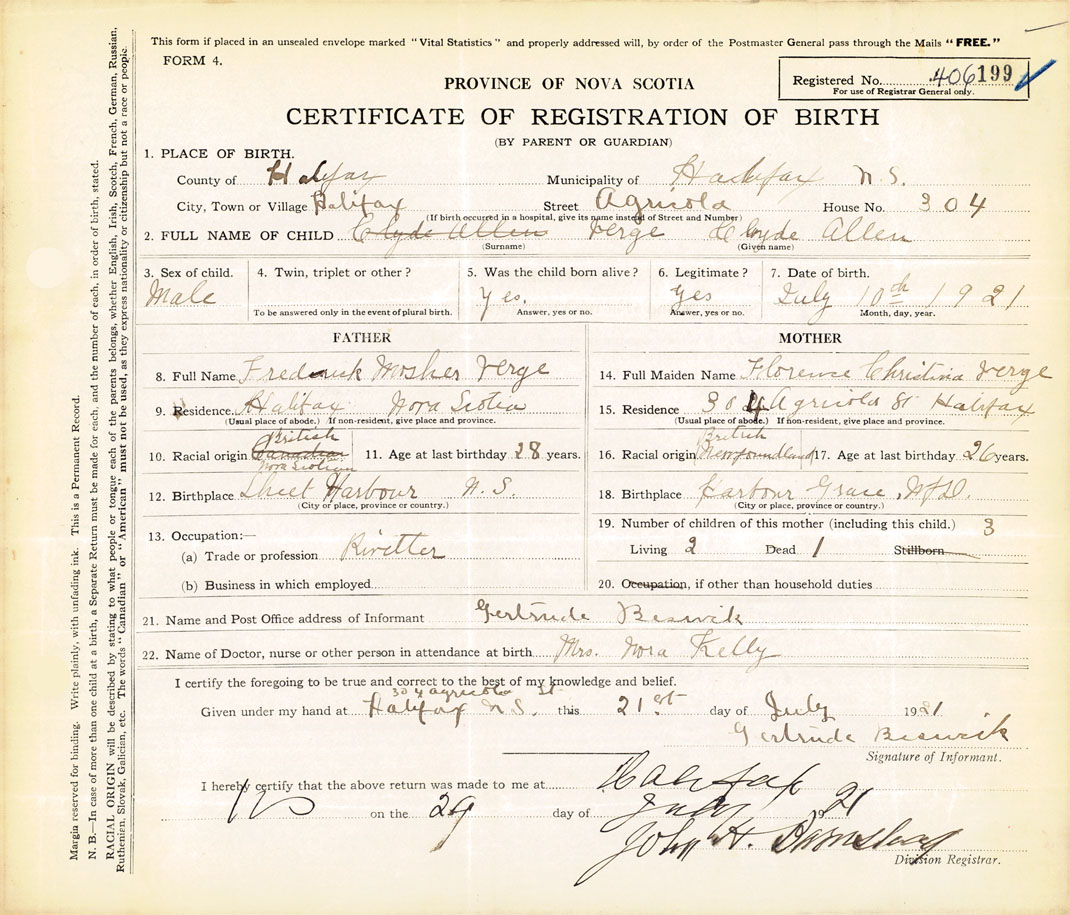 This form if placed in an unsealed envelope marked "Vital Statistics" and properly addressed will, by order of the Postmaster General pass through the Mails "FREE."
FORM 4.
Registered No. 406199
For use of Registrar General only.
PROVINCE OF NOVA SCOTIA
CERTIFICATE OF REGISTRATION OF BIRTH
(BY PARENT OR GUARDIAN)
1. PLACE OF BIRTH.
County of Halifax Municipality of Halifax N.S.
City, Town or Village Halifax Street Agricola House No. 304
(If birth occurred in a hospital, give its name instead of Street and Number)
2. FULL NAME OF CHILD Clyde Allen Verge Clyde Allen
(Surname) (Given name)
3. Sex of child. 4. Twin, triplet or other? 5. Was the child born alive? 6. Legitimate? 7. Date of birth.
Male Yes. Yes July 10th 1921
To be answered only in the event of plural birth. Answer, yes or no. Answer, yes or no. Month, day, year.
FATHER
8. Full Name Frederick Mosher Verge
9. Residence Halifax Nova Scotia
(Usual place of abode.) If non-resident, give place and province.
British
10. Racial origin Canadian 11. Age at last birthday 28 years.
Nova Scotian
12. Birthplace Sheet Harbour N.S.
(City or place, province or country.)
13. Occupation:—
(a) Trade or profession Rivetter
(b) Business in which employed
MOTHER
14. Full Maiden Name Florence Christina Verge
15. Residence 304 Agricola St Halifax
(Usual place of abode.) If non-resident, give place and province.
British
16. Racial origin Newfoundland 17. Age at last birthday 26 years.
18. Birthplace Harbour Grace, Nfld.
(City or place, province or country.)
19. Number of children of this mother (including this child.) 3
Living 2 Dead 1 Stillborn
20. Occupation, if other than household duties
21. Name and Post Office address of Informant Gertrude Beswik
22. Name of Doctor, nurse or other person in attendance at birth Mrs. Nora Kelly
I certify the foregoing to be true and correct to the best of my knowledge and belief.
304 Agricola St
Given under my hand at Halifax N.S. this 21st day of July 1921
Gertrude Beswik
Signature of Informant.
I hereby certify that the above return was made to me at Halifax
on the 29 day of July 1921
John H.
Division Registrar.
Margin reserved for binding. Write plainly, with unfading ink. This is a Permanent Record.
N. B.—In case of more than one child at a birth, a Separate Return must be made for each, and the number of each, in order of birth, stated.
RACIAL ORIGIN will be described by stating to what people or tongue each of the parents belongs, whether English, Irish, Scotch, French, German, Russian,
Ruthenian, Slovak, Galician, etc. The words "Canadian" or "American" must not be used, as they express nationality or citizenship but not a race or people.